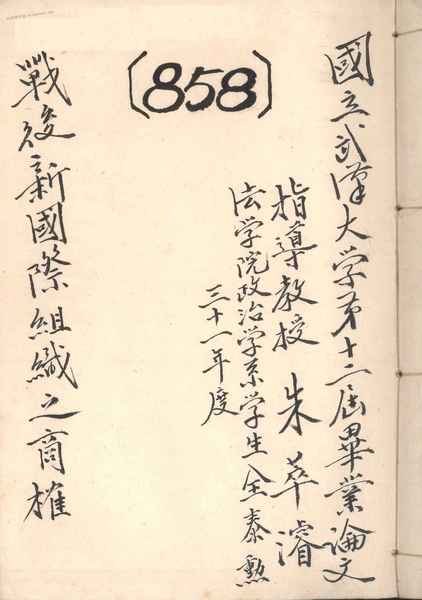 國立武漢大学第十二屆畢業論文
指導教授 朱萃濬
法学院政治学系学生全泰勲
三十一年度
(858)
戰後新國際組織之商榷